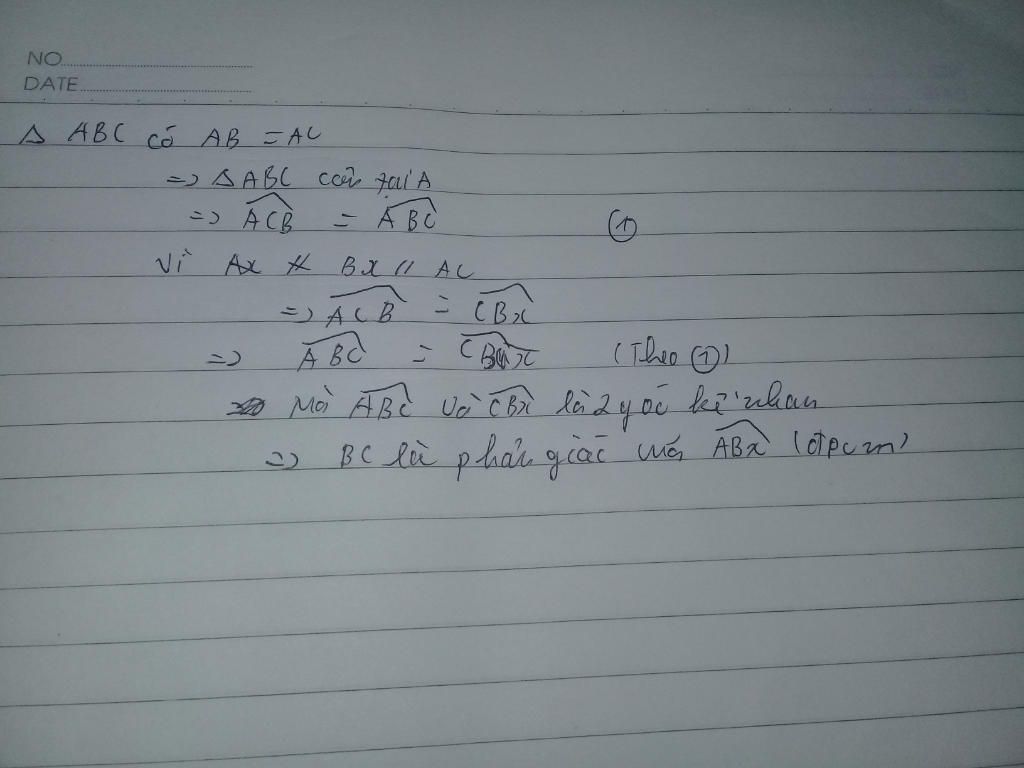 NO
DATE
Δ ABC có AB = AC
=> Δ ABC cân tại A
=> ACB = ABC ①
Vì Bx // AC
=> ACB = CBx
=> ABC = CBx (Theo ①)
Mà ABC và CBx là 2 góc kề nhau
=> BC là phân giác của ABx (đpcm)